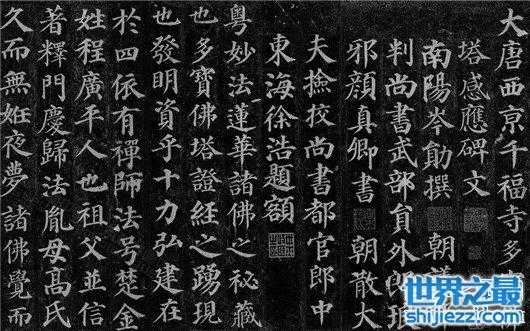 大唐西京千福寺多
塔感應碑文
南陽岑勛撰 朝議
判尚書武部員外郎琅
邪顏真卿書 朝散大
夫撿挍尚書都官郎中
東海徐浩題額
粵妙法蓮華諸佛之秘藏
也多寶佛塔證經之踴現
也發明資乎十力弘建在
於四依有禪師法号楚金
姓程廣平人也祖父並信
著釋門慶歸法胤母高氏
久而無姙夜夢諸佛覺而
世界之最
shijiezhizui.com